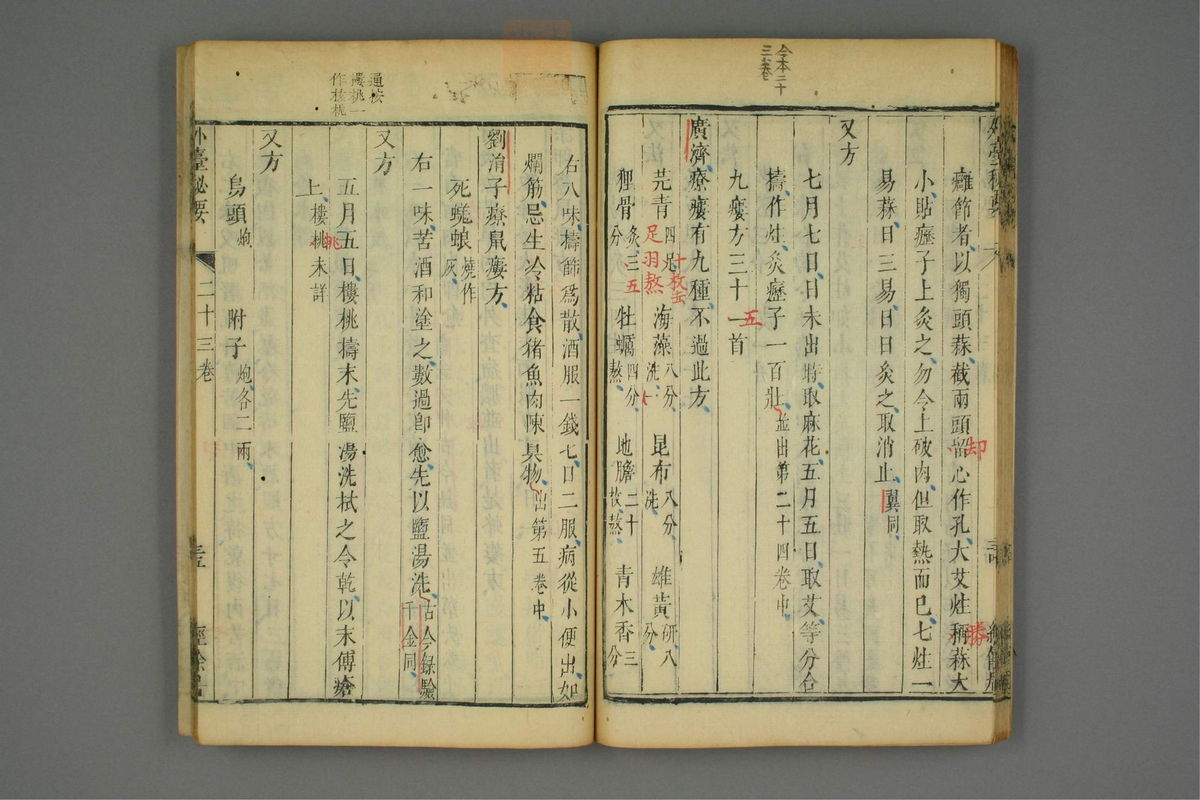 今本二十
三卷
癰節者以獨頭蒜截兩頭留心作孔大艾炷稱蒜大
却
勝
小貼癧子上灸之勿令上破肉但取熱而已七炷一
易蒜日三易日日灸之取消止翼同
又方
七月七日日未出時取麻花五月五日取艾等分合
擣作炷灸癧子一百壯並出第二十四卷中
九瘻方三十一首
五
廣濟療瘻有九種不過此方
芫青四 海藻八分洗 昆布八分洗 雄黃研八分
十枚去
足羽熬
狸骨炙三分 牡蠣四分熬 地膽二十枚熬 青木香三分
五
右八味擣篩爲散酒服一錢匕日二服病從小便出如
爛筋忌生冷粘食猪魚肉陳臭物出第五卷中
劉涓子療鼠瘻方
死蜣蜋燒作灰
右一味苦酒和塗之數過卽愈先以鹽湯洗古今錄驗千金同
又方
五月五日樓桃擣末先鹽湯洗拭之令乾以末傅瘡
上樓桃未詳
桃
又方
烏頭炮 附子炮各二兩
外臺秘要 二十三卷 經餘居
通按
樓桃一
作核桃